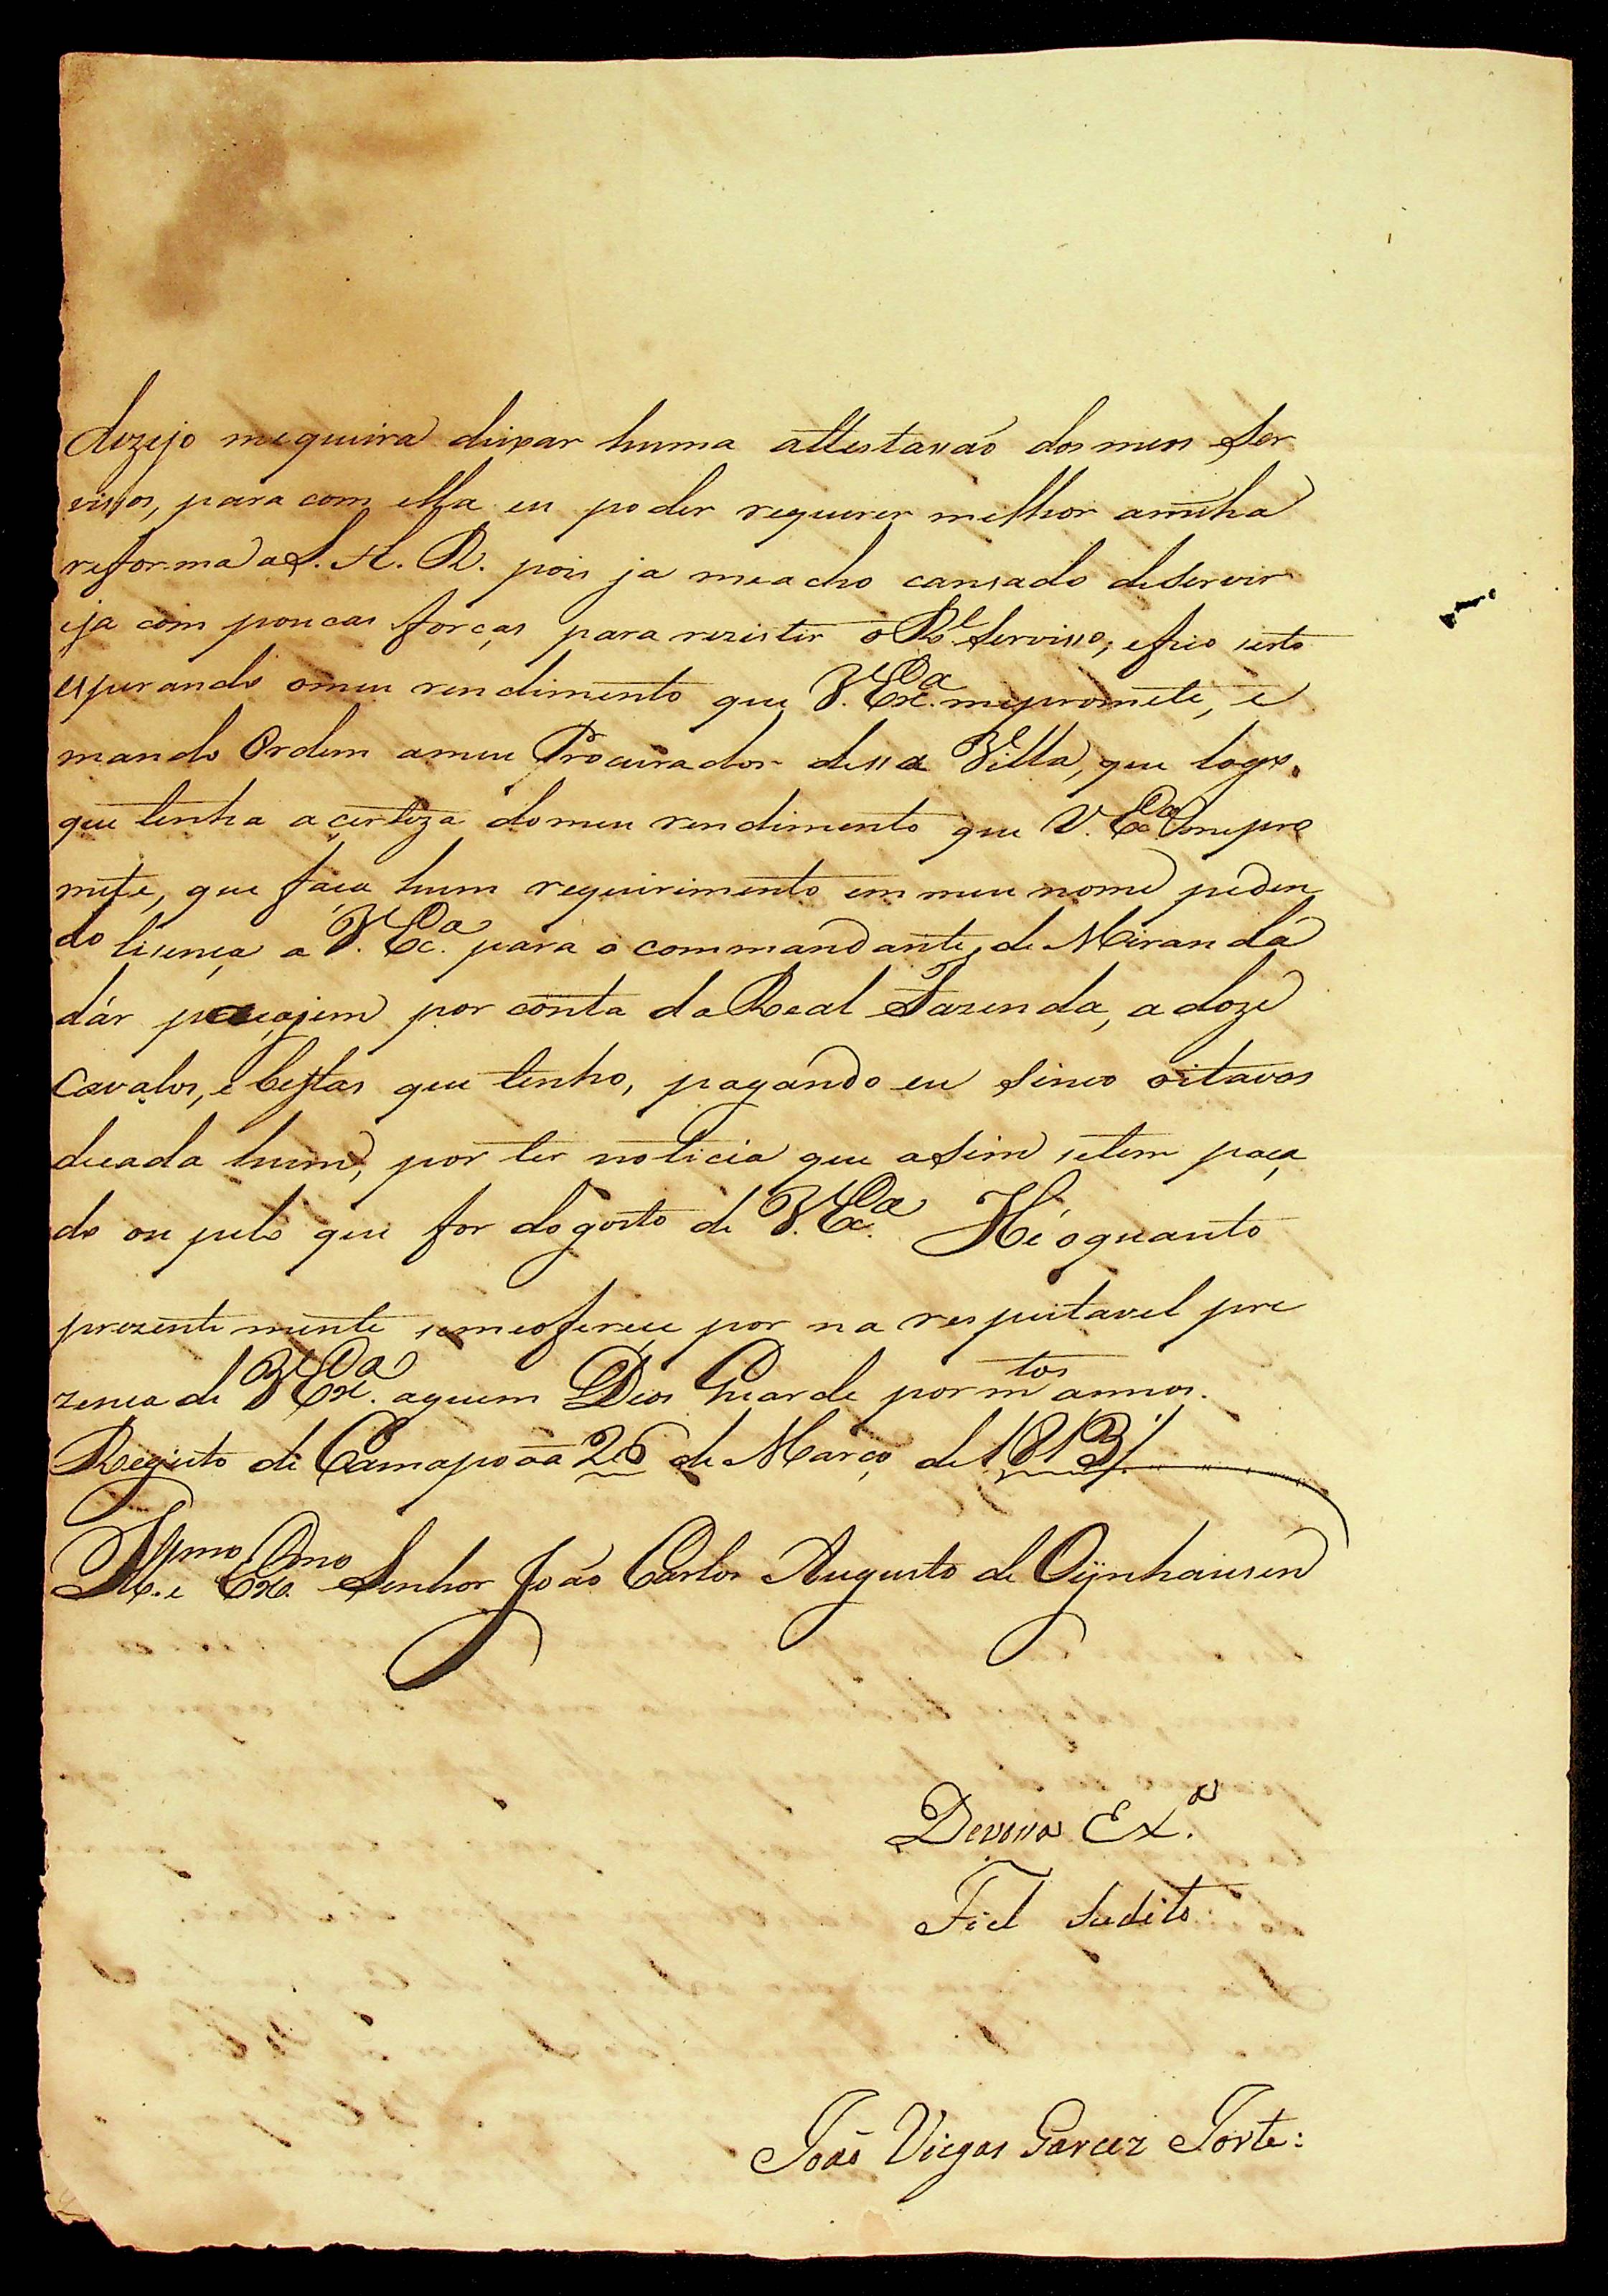 dezejo mequeira deixar huma attestassaõ dos meus Ser
vissos, para com ella eu poder requerer melhor aminha
reforma a S. A. R. pois ja meacho cansado deServir
eja com poucas forças para rezistir o R.l Servisso; efico serto
esperando omeu rendimento que V. Ex.ca mepromete, e
mando Ordem ameu Procurador dessa Villa, que logo,
que tenha acerteza domeu rendimento que V. Ex.ca mepro
mete, que faça hum requirimento em meu nome pedin
do lisença a V. Ex.ca para o commandante de Miranda
dár paçajem por conta da Real Fazenda, a doze
Cavalos, e bestas que tenho, pagando eu Sinco oitavas
decada hum, por ter noticia que asim setem paça
do ou pelo que for do gosto de V. Ex.ca Hé oquanto
prezente mente semeoferece por na respeitavel pre
zença de V. Ex.ca aquem Deos Guarde por m.tos annos.
Registo de Camapoãa 26 de Março de 1813,,
Ill.mo e Ex.mo Senhor João Carlos Augusto de Oÿnhausen
Devossa Ex.a
Fiel Sudito
João Viegas Garcez Forte: